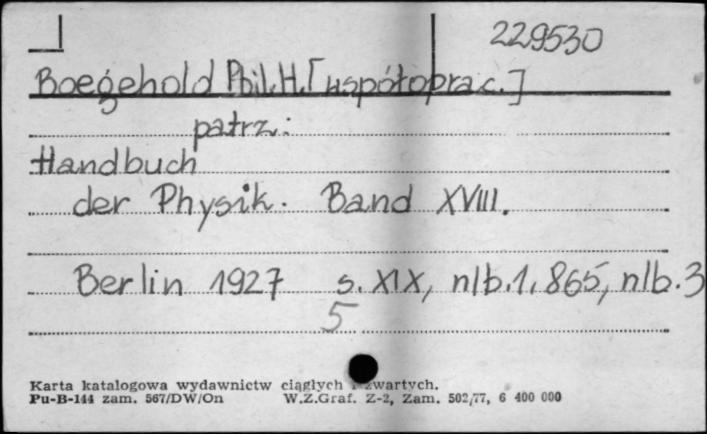 229530
Boegehold Phil. H. [współoprac.]
patrz:
Handbuch
der Physik. Band XVIII.
Berlin 1927 s. XIX, nlb. 1, 865, nlb. 3
5
Karta katalogowa wydawnictw ciągłych i zwartych.
Pu-B-144 zam. 567/DW/On W.Z.Graf. Z-2, Zam. 502/77, 6 400 000